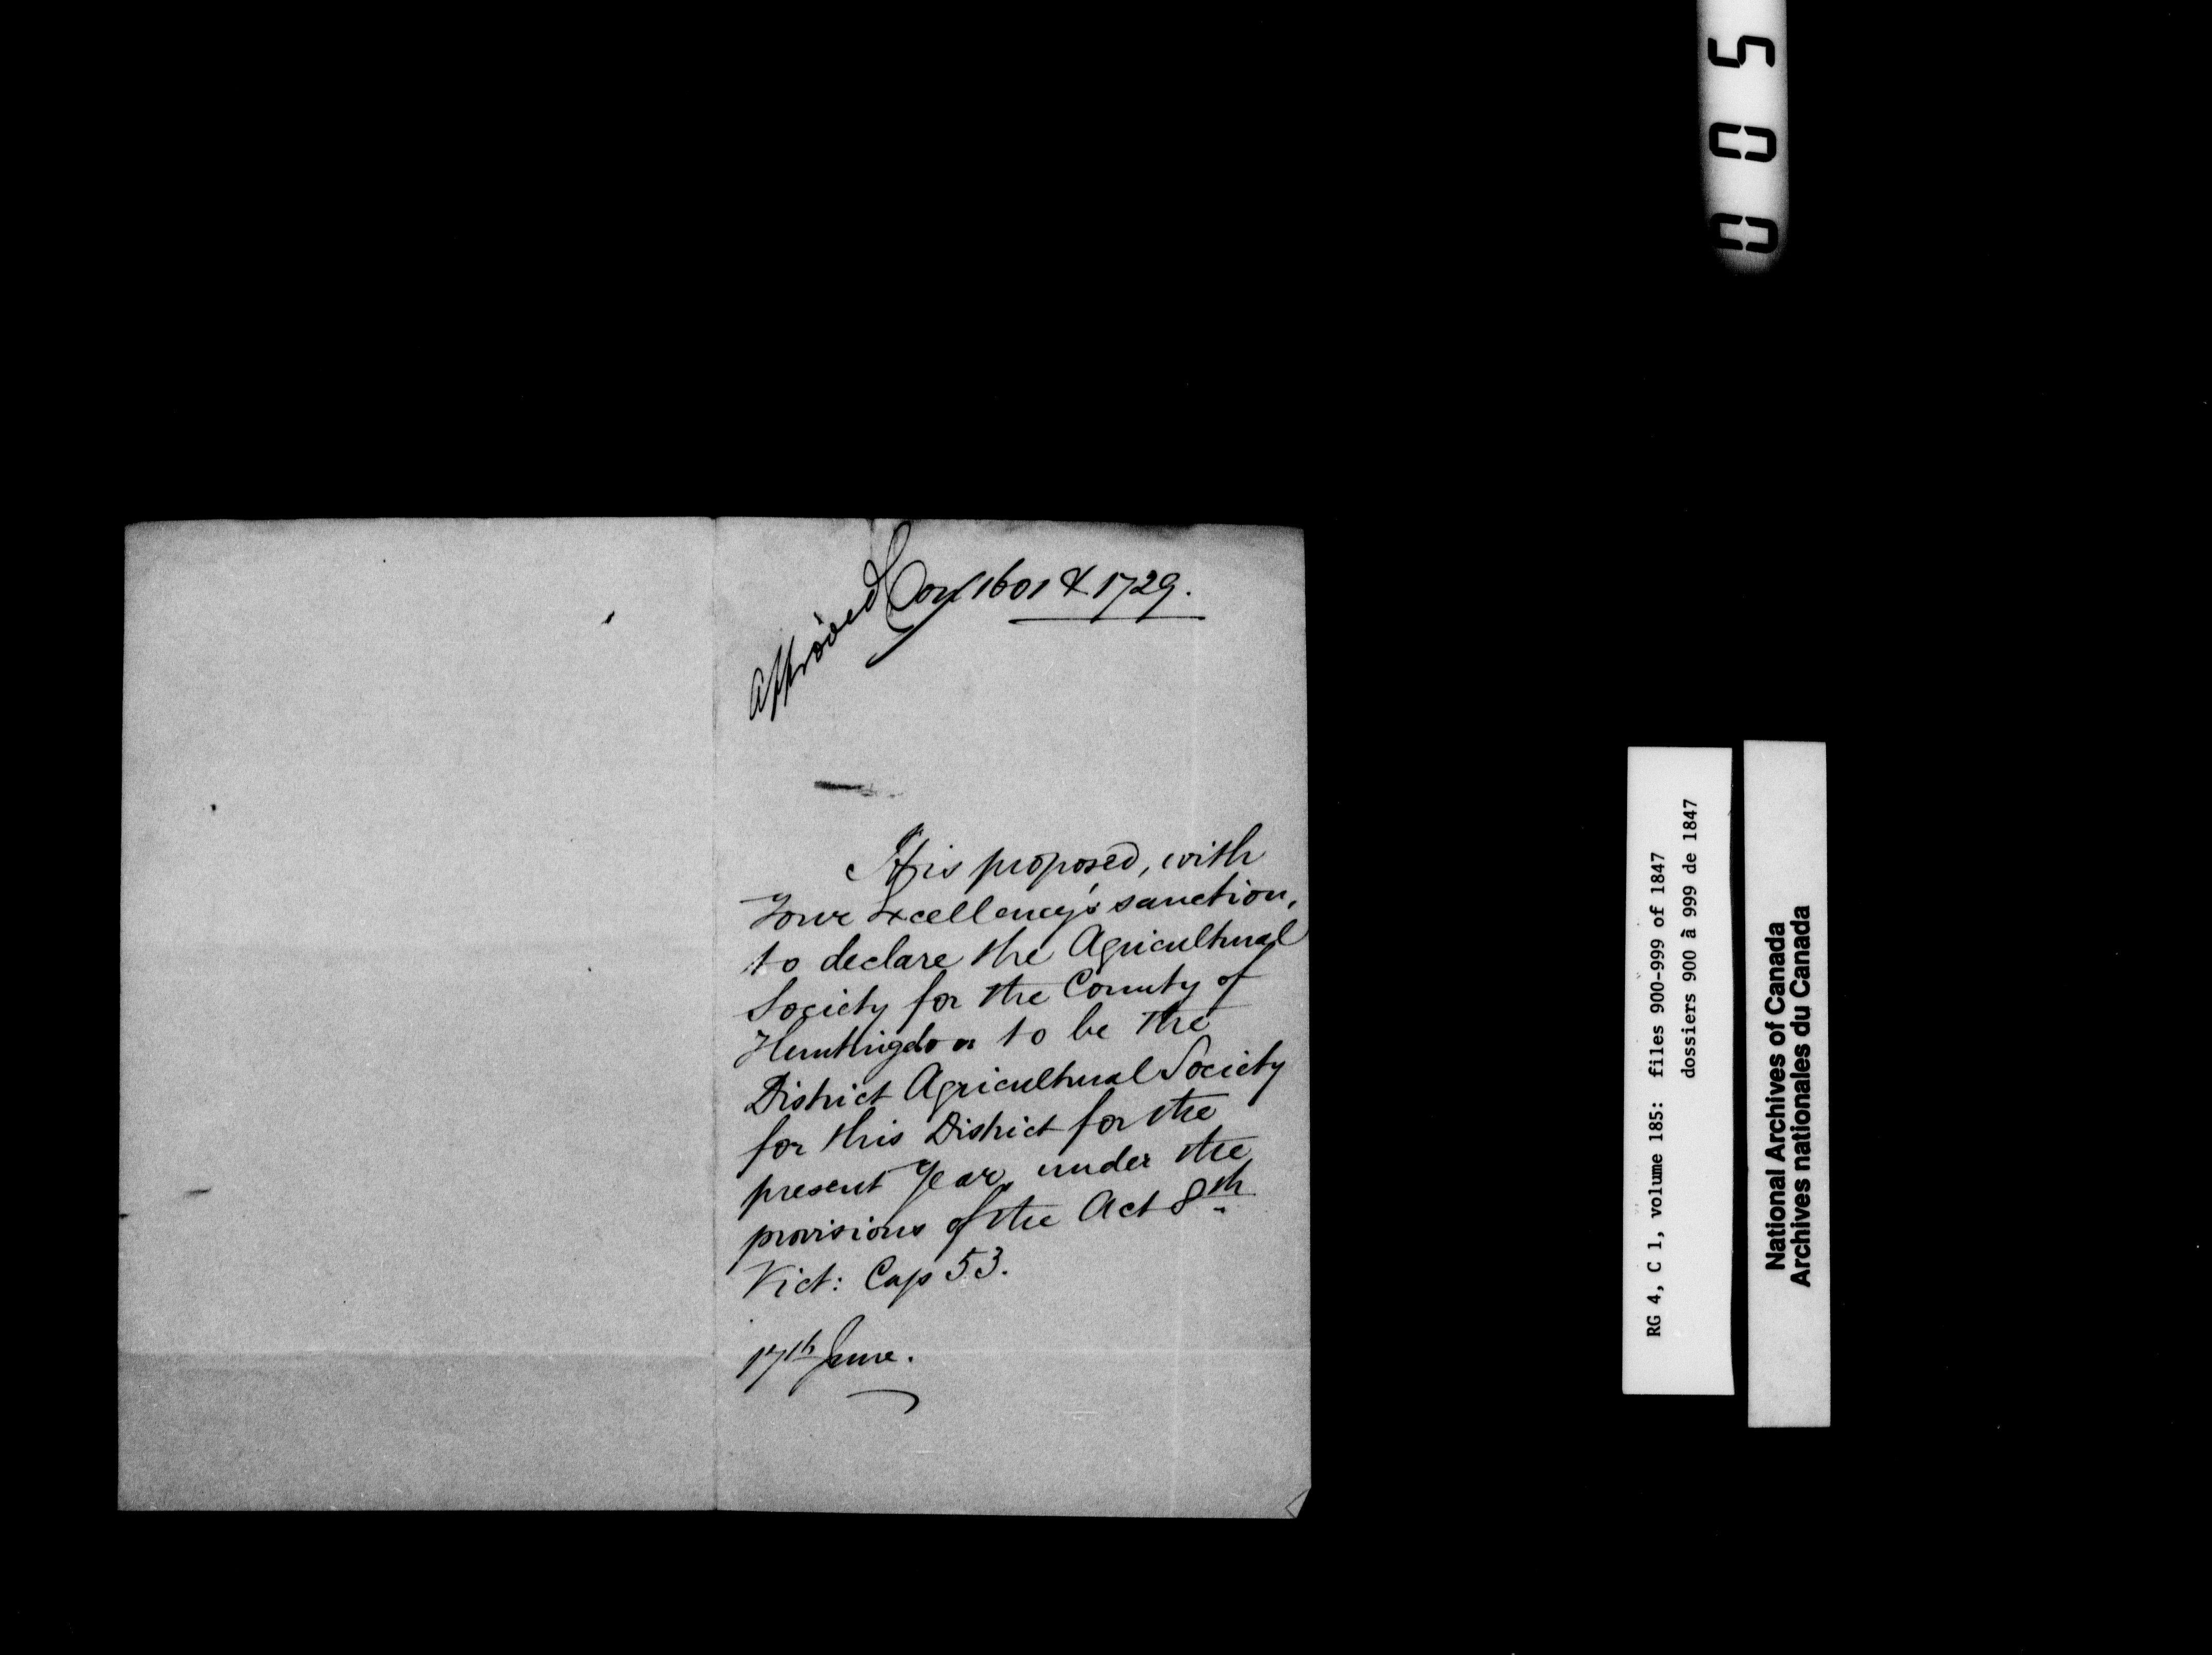 Approved
on 1601 & 1729.
It is proposed, with
Your Excellency's sanction,
to declare the Agricultural
Society for the County of
Huntingdon to be the
District Agricultural Society
for this District for the
present Year, under the
provisions of the Act 8th
Vict: Cap 53.
17th June.
005
RG 4, C 1, volume 185: files 900-999 of 1847
dossiers 900 à 999 de 1847
National Archives of Canada
Archives nationales du Canada